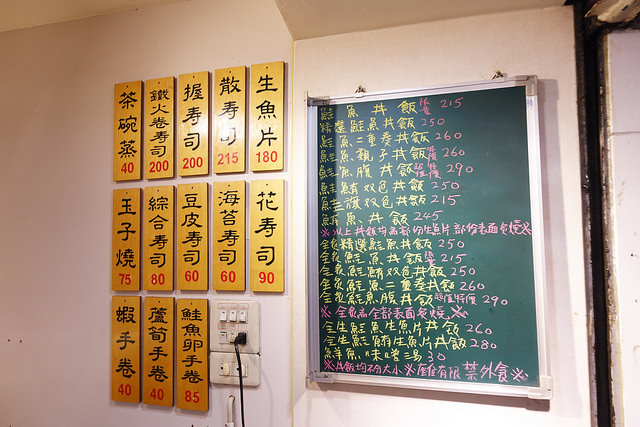 生魚片 180
散寿司 215
握寿司 200
鐵火卷寿司 200
茶碗蒸 40
花寿司 90
海苔寿司 60
豆皮寿司 60
綜合寿司 80
玉子燒 75
鮭魚卵手卷 85
蘆筍手卷 40
蝦手卷 40
鮭魚丼飯 215
精選鮭魚丼飯 250
鮭魚二重奏丼飯 260
鮭魚親子丼飯 260
鮭魚腹丼飯 290
鮭鮪双色丼飯 250
鮭旗双色丼飯 215
鮪魚丼飯 245
※以上丼飯均為部份生魚片部份表面炙燒※
全炙精選鮭魚丼飯 250
全炙鮭魚丼飯 215
全炙鮭鮪双色丼飯 250
全炙鮭魚二重奏丼飯 260
全炙鮭魚腹丼飯 290
※全炙為全部表面炙燒※
全生鮭魚生魚片丼飯 260
全生鮭鮪生魚片丼飯 280
鮮魚味噌湯 30
※丼飯均不分大小※座位有限 禁外食※